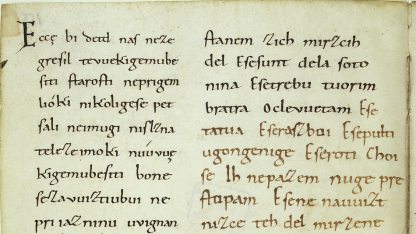 Eccę bi detd naſ neze
greſil tevuekigemube
ſiti ſtaroſti neprigem
lióki nikoligeſe pet
ſali neimugi niſlzna
telezeimoki núúvuę
kigemubeſiti bone
ſezavuiztiubui ne
priiazninu uvignan
ſtanem zich mirzcih
del Eſeſunt dela ſoto
nina Eſetrebu tuorim
bratra Oclevuetam Eſe
tatua Eſerazboi Eſepulti
ugongenige Eſeroti Choi
ſe Ih nepazem nuge pre
ſtopam Eſene nauuizt
nizce teh del mirzene